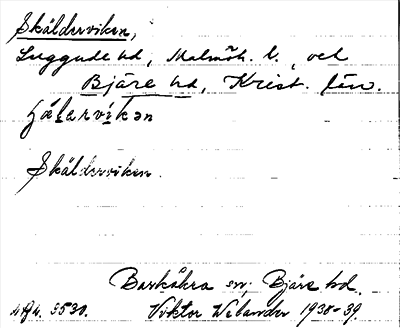 Skälderviken,
Luggude hd, Malmöh. l. och
Bjäre hd, Krist. län.
Skälderviken.
Barkåkra sn, Bjäre hd.
5530. Viktor Welander 1938-39.